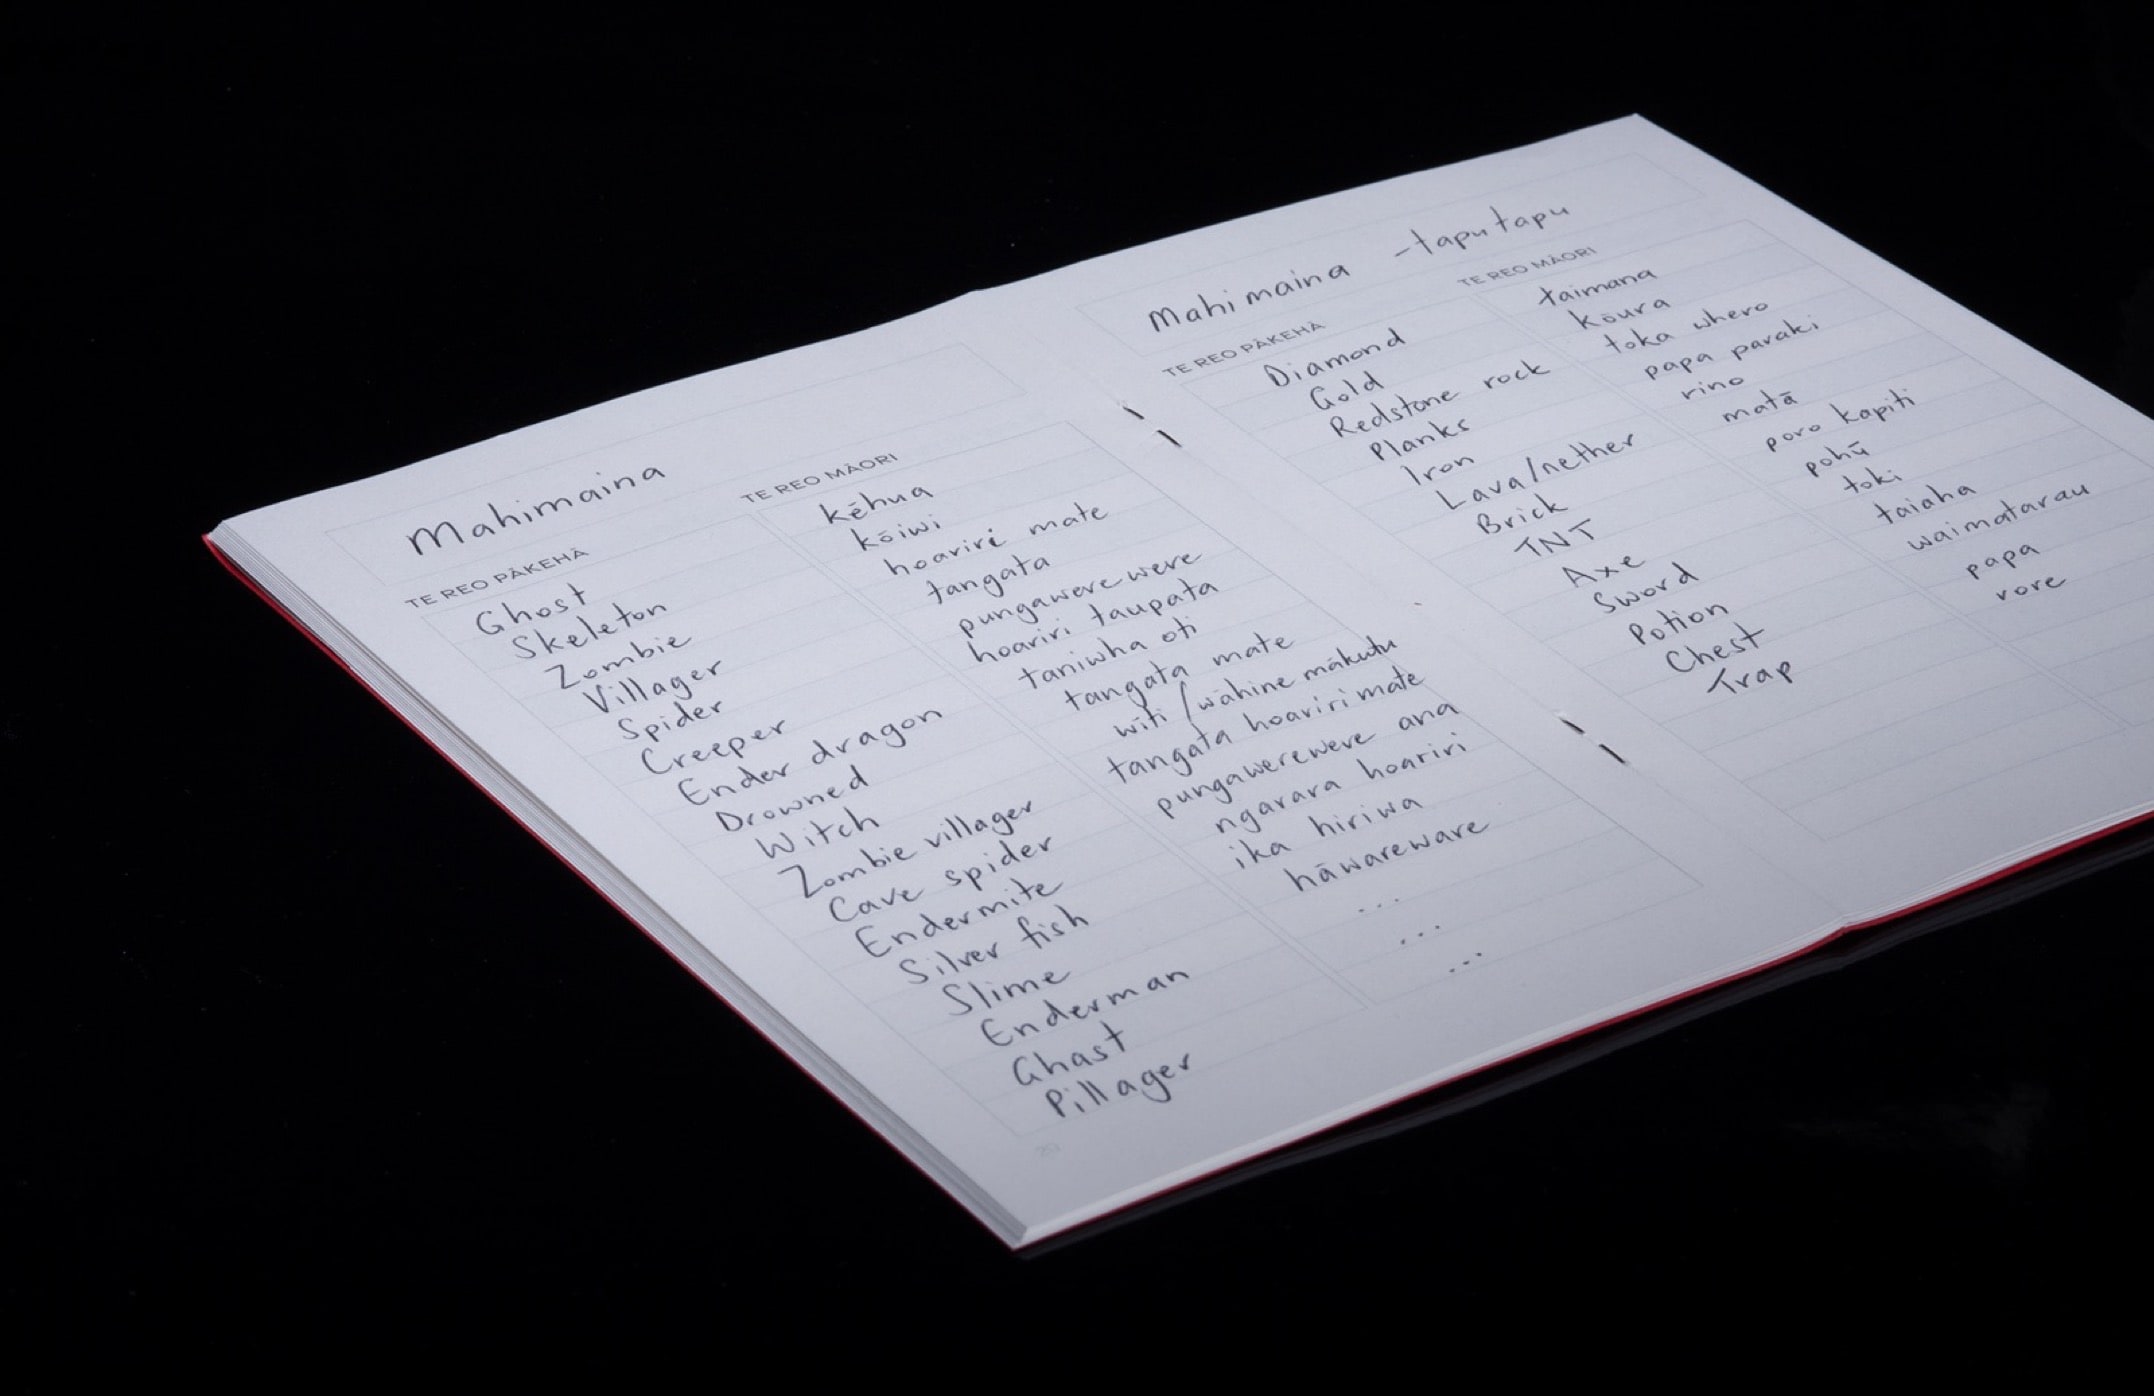 Mahimaina
TE REO PĀKEHĀ TE REO MĀORI
Ghost kēhua
Skeleton kōiwi
Zombie hoariri mate
Villager tangata
Spider pungawerewere
Creeper hoariri taupata
Ender dragon taniwha oti
Drowned tangata mate
Witch wīti / wāhine mākutu
Zombie villager tangata hoariri mate
Cave spider pungawerewere ana
Endermite ngarara hoariri
Silver fish ika hiriwa
Slime hāwareware
Enderman ...
Ghast ...
Pillager ...
20
Mahimaina - taputapu
TE REO PĀKEHĀ TE REO MĀORI
Diamond taimana
Gold kōura
Redstone rock toka whero
Planks papa paraki
Iron rino
Lava/nether matā
Brick poro kapiti
TNT pohū
Axe toki
Sword taiaha
Potion waimatarau
Chest papa
Trap rore